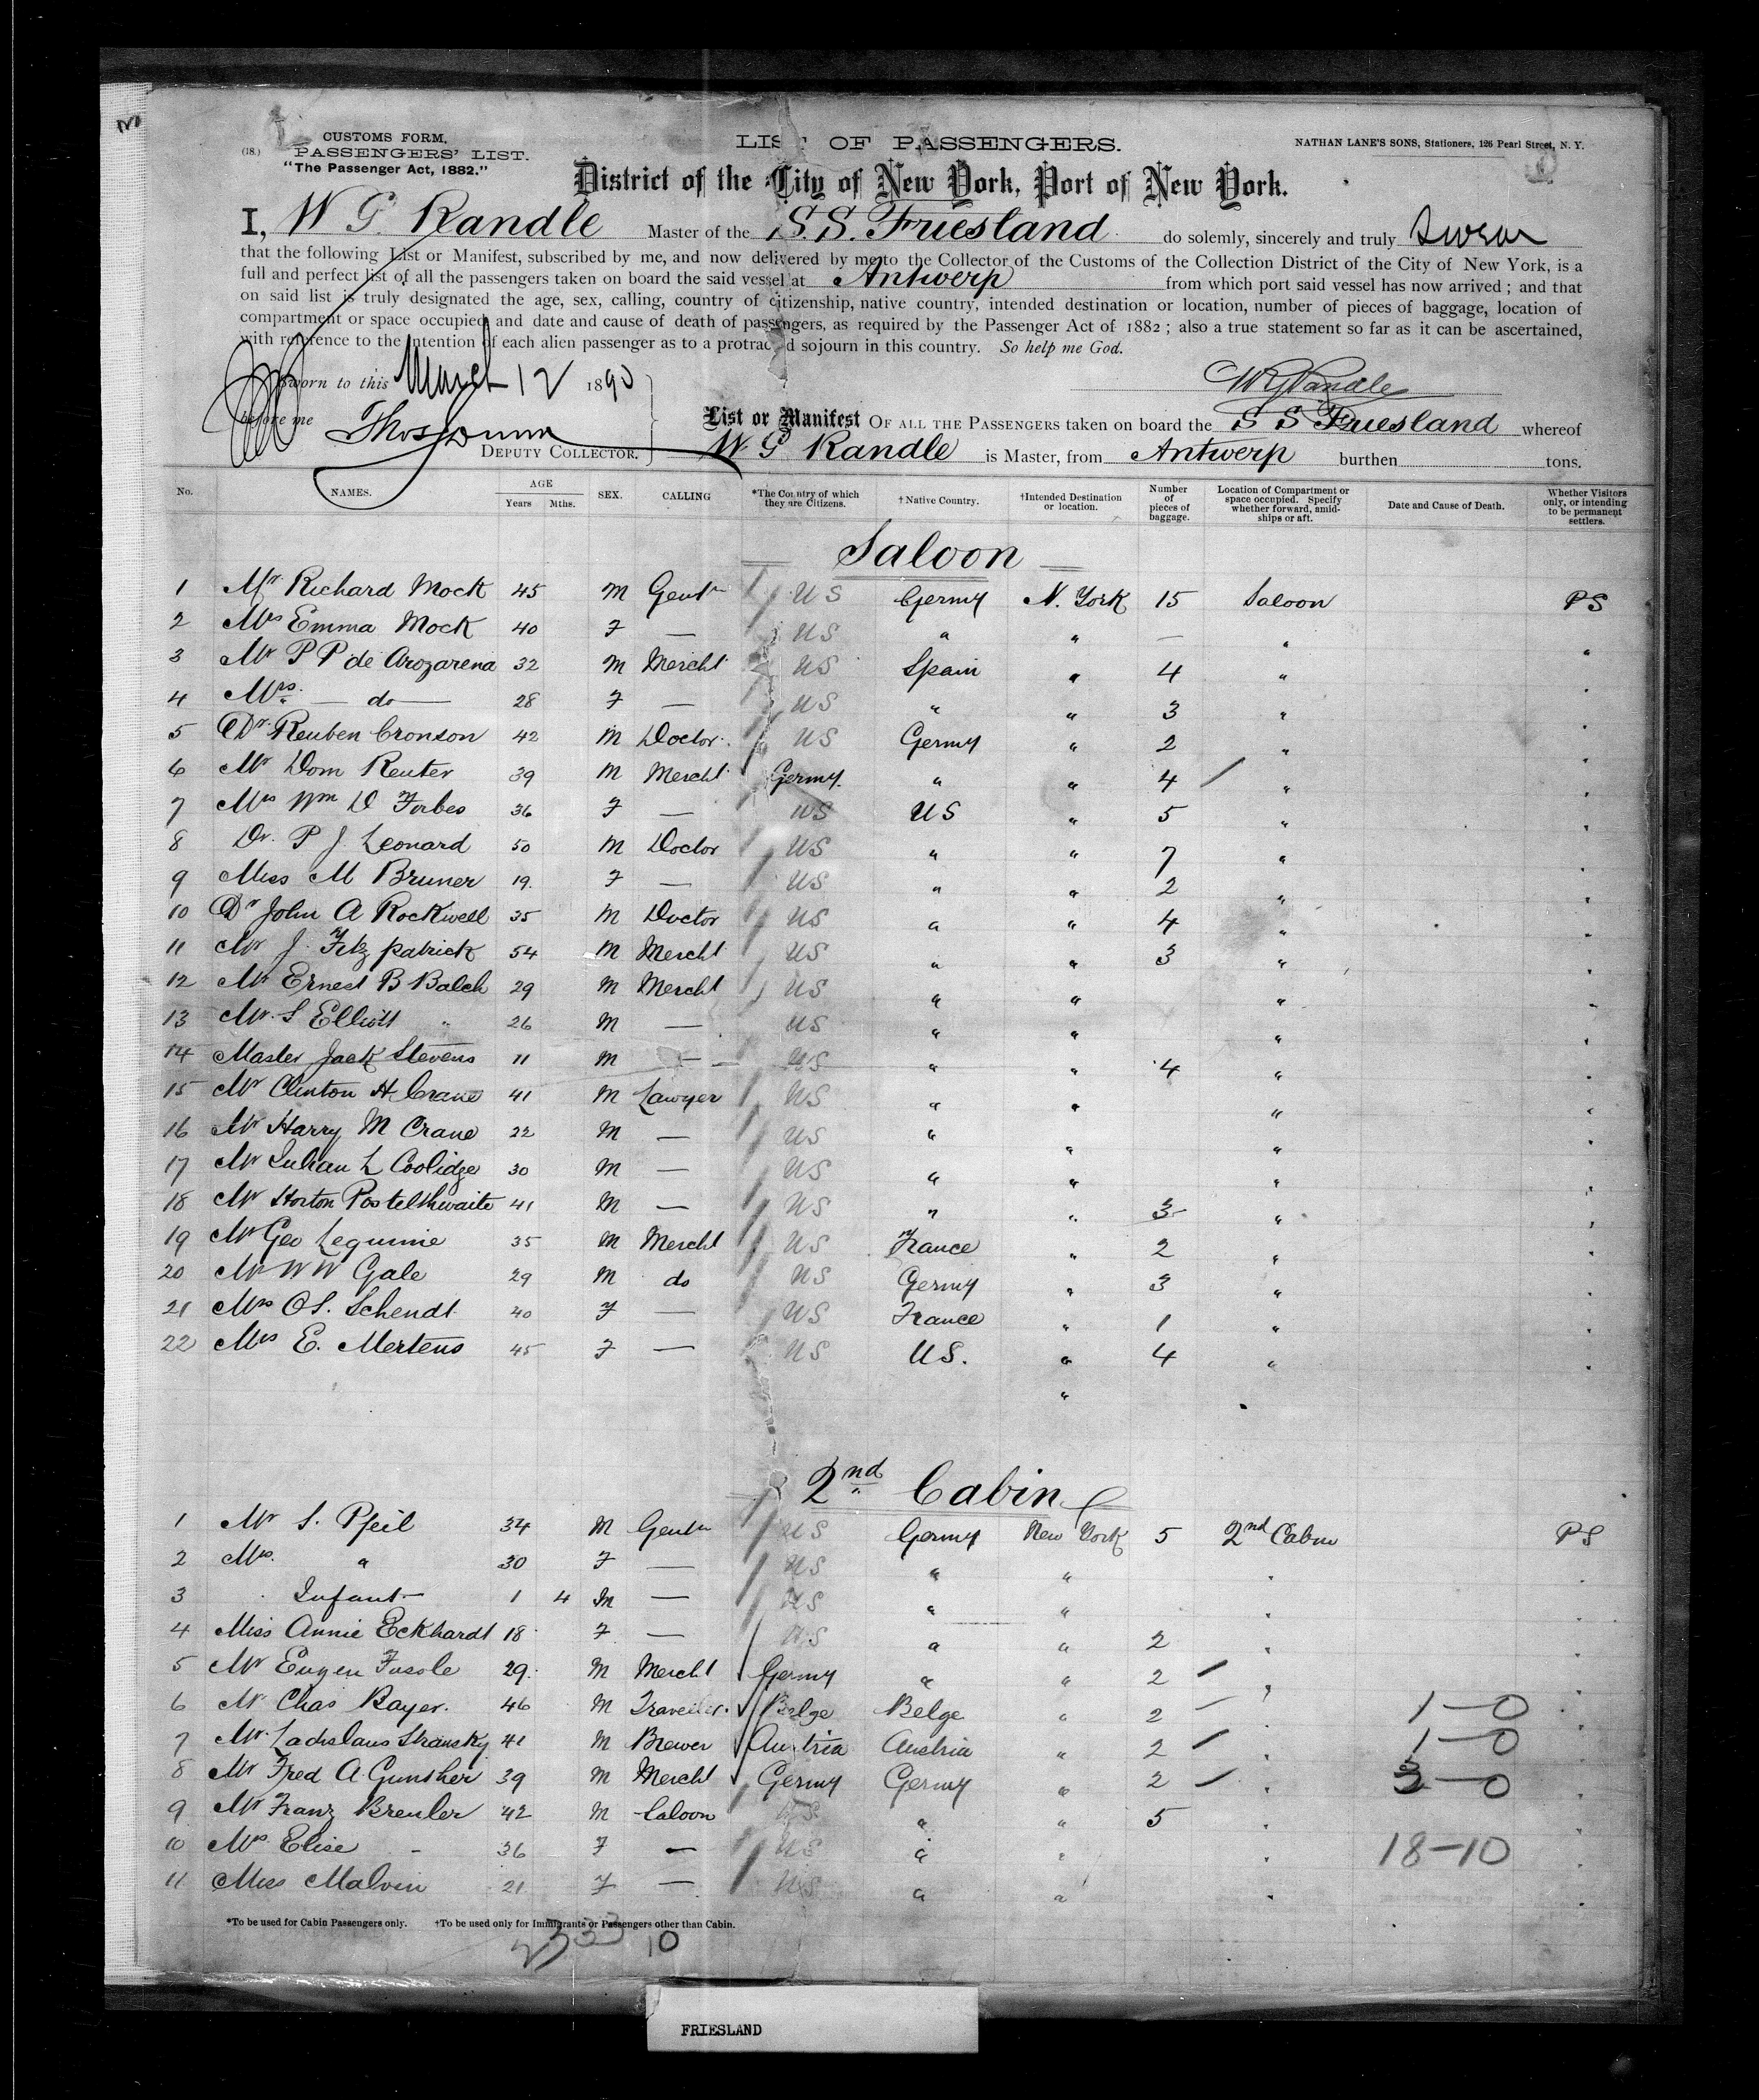 CUSTOMS FORM,
(18.) PASSENGERS' LIST.
"The Passenger Act, 1882."
LIST OF PASSENGERS.
NATHAN LANE'S SONS, Stationers, 126 Pearl Street, N. Y.
District of the City of New York, Port of New York.
I, W G Randle Master of the S.S. Friesland do solemnly, sincerely and truly swear
that the following List or Manifest, subscribed by me, and now delivered by me to the Collector of the Customs of the Collection District of the City of New York, is a
full and perfect list of all the passengers taken on board the said vessel at Antwerp from which port said vessel has now arrived; and that
on said list is truly designated the age, sex, calling, country of citizenship, native country, intended destination or location, number of pieces of baggage, location of
compartment or space occupied and date and cause of death of passengers, as required by the Passenger Act of 1882; also a true statement so far as it can be ascertained,
with reference to the intention of each alien passenger as to a protracted sojourn in this country. So help me God.
Sworn to this March 12 1890
W G Randle
before me Thos Dunn
DEPUTY COLLECTOR.
List or Manifest OF ALL THE PASSENGERS taken on board the S S Friesland whereof
W G Randle is Master, from Antwerp burthen tons.
No. NAMES. AGE Years Mths. SEX. CALLING *The Country of which they are Citizens. †Native Country. †Intended Destination or location. Number of pieces of baggage. Location of Compartment or space occupied. Specify whether forward, amidships or aft. Date and Cause of Death. Whether Visitors only, or intending to be permanent settlers.
Saloon
1 Mr Richard Mock 45 M Gentn US Germy N. York 15 Saloon PS
2 Mrs Emma Mock 40 F — US " " — " "
3 Mr P P de Arozarena 32 M Mercht US Spain " 4 " "
4 Mrs. — do — 28 F — US " " 3 " "
5 Dr. Reuben Cronson 42 M Doctor US Germy " 2 " "
6 Mr Dom Reuter 39 M Mercht Germy. " " 4 " "
7 Mrs Wm D Forbes 36 F — US US " 5 " "
8 Dr. P J Leonard 50 M Doctor US " " 7 " "
9 Miss M Bruner 19 F — US " " 2 " "
10 Dr John A Rockwell 35 M Doctor US " " 4 " "
11 Mr J Fitzpatrick 54 M Mercht US " " 3 " "
12 Mr Ernest B Balch 29 M Mercht US " " " "
13 Mr. S Elliott 26 M — US " " " "
14 Master Jack Stevens 11 M — US " " 4 " "
15 Mr Clinton H Crane 41 M Lawyer US " " " "
16 Mr Harry M Crane 22 M — US " " " "
17 Mr Julian L Coolidge 30 M — US " " " "
18 Mr Horton Postelthwaite 41 M — US " " 3 " "
19 Mr Geo Leguime 35 M Mercht US France " 2 " "
20 Mr W W Gale 29 M do US Germy " 3 " "
21 Mrs O S. Schendt 40 F — US France " 1 " "
22 Mrs E. Mertens 45 F — US US. " 4 " "
"
2nd Cabin
1 Mr S. Pfeil 34 M Gentn US Germy New York 5 2nd Cabin PS
2 Mrs. " 30 F — US " " " "
3 Infant 1 4 M — US " " " "
4 Miss Annie Eckhardt 18 F — US " " 2 " "
5 Mr Eugen 29 M Mercht Germy " " 2 " "
6 Mr Chas Bayer. 46 M Traveller Belge Belge " 2 " 1—0
7 Mr. Ladislaus Stransky 41 M Brewer Austria Austria " 2 " 1—0
8 Mr Fred A Gunther 39 M Mercht Germy Germy " 2 " 3—0
9 Mr Franz Breuler 42 M Saloon US " " 5 " "
10 Mrs Elise " 36 F — US " " " 18—10
11 Miss Malvin 21 F — US " " " "
*To be used for Cabin Passengers only. †To be used only for Immigrants or Passengers other than Cabin.
10
FRIESLAND